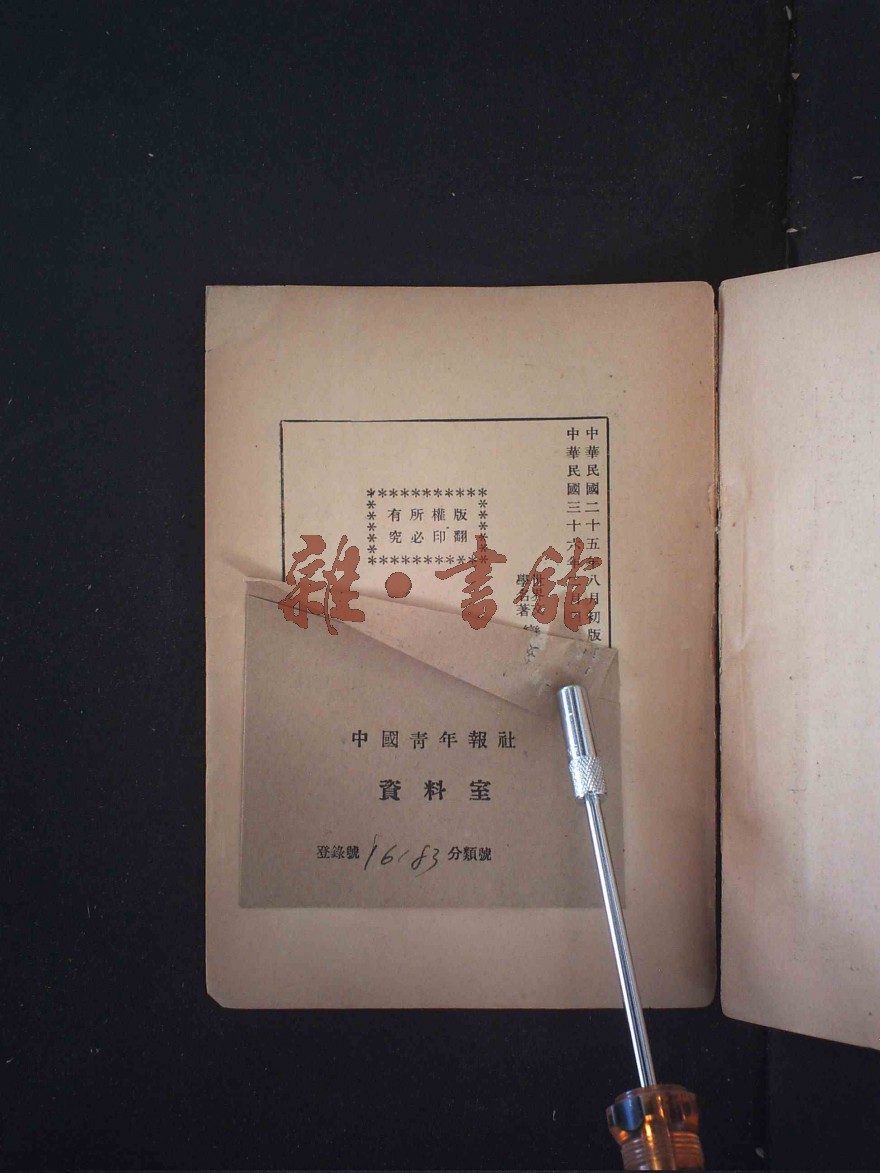 中華民國二十五年八月初版
中華民國三十六年
學名著
版權所有
翻印必究
雜·書館
中國青年報社
資料室
登錄號 16183 分類號